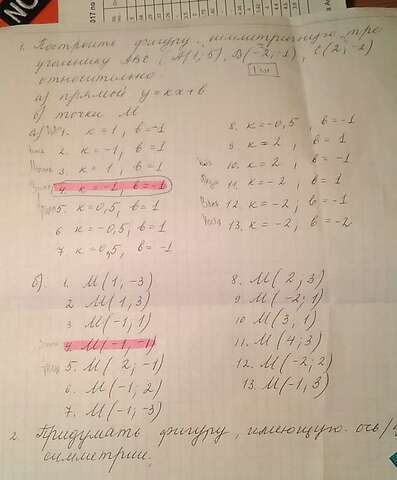 1. Построить фигуру симметричную тре
угольнику ABC, A(1; 5), B(-2; -1), C(2; -1)
относительно
а) прямой y = kx + b
б) точки M
а) 1. к = 1, в = -1
2. к = -1, в = 1
3. к = 1, в = 1
4. к = -1, в = -1
5. к = 0,5, в = 1
6 к = -0,5, в = 1
7. к = 0,5, в = -1
8. к = -0,5 в = -1
9. к = 2, в = 1
10. к = 2, в = -1
11. к = -2, в = 1
12. к = -2, в = -1
13. к = -2, в = -2
б) 1. M(1, -3)
2 M(1, 3)
3 M(-1; 1)
4. M(-1, -1)
5. M(2; -1)
6. M(-1; 2)
7. M(-1; -3)
8. M(2; 3)
9. M(-2; 1)
10 M(3; 1)
11. M(4; 3)
12. M(-2; 2)
13. M(-1, 3)
2. Придумать фигуру, имеющую ось/
симметрии.